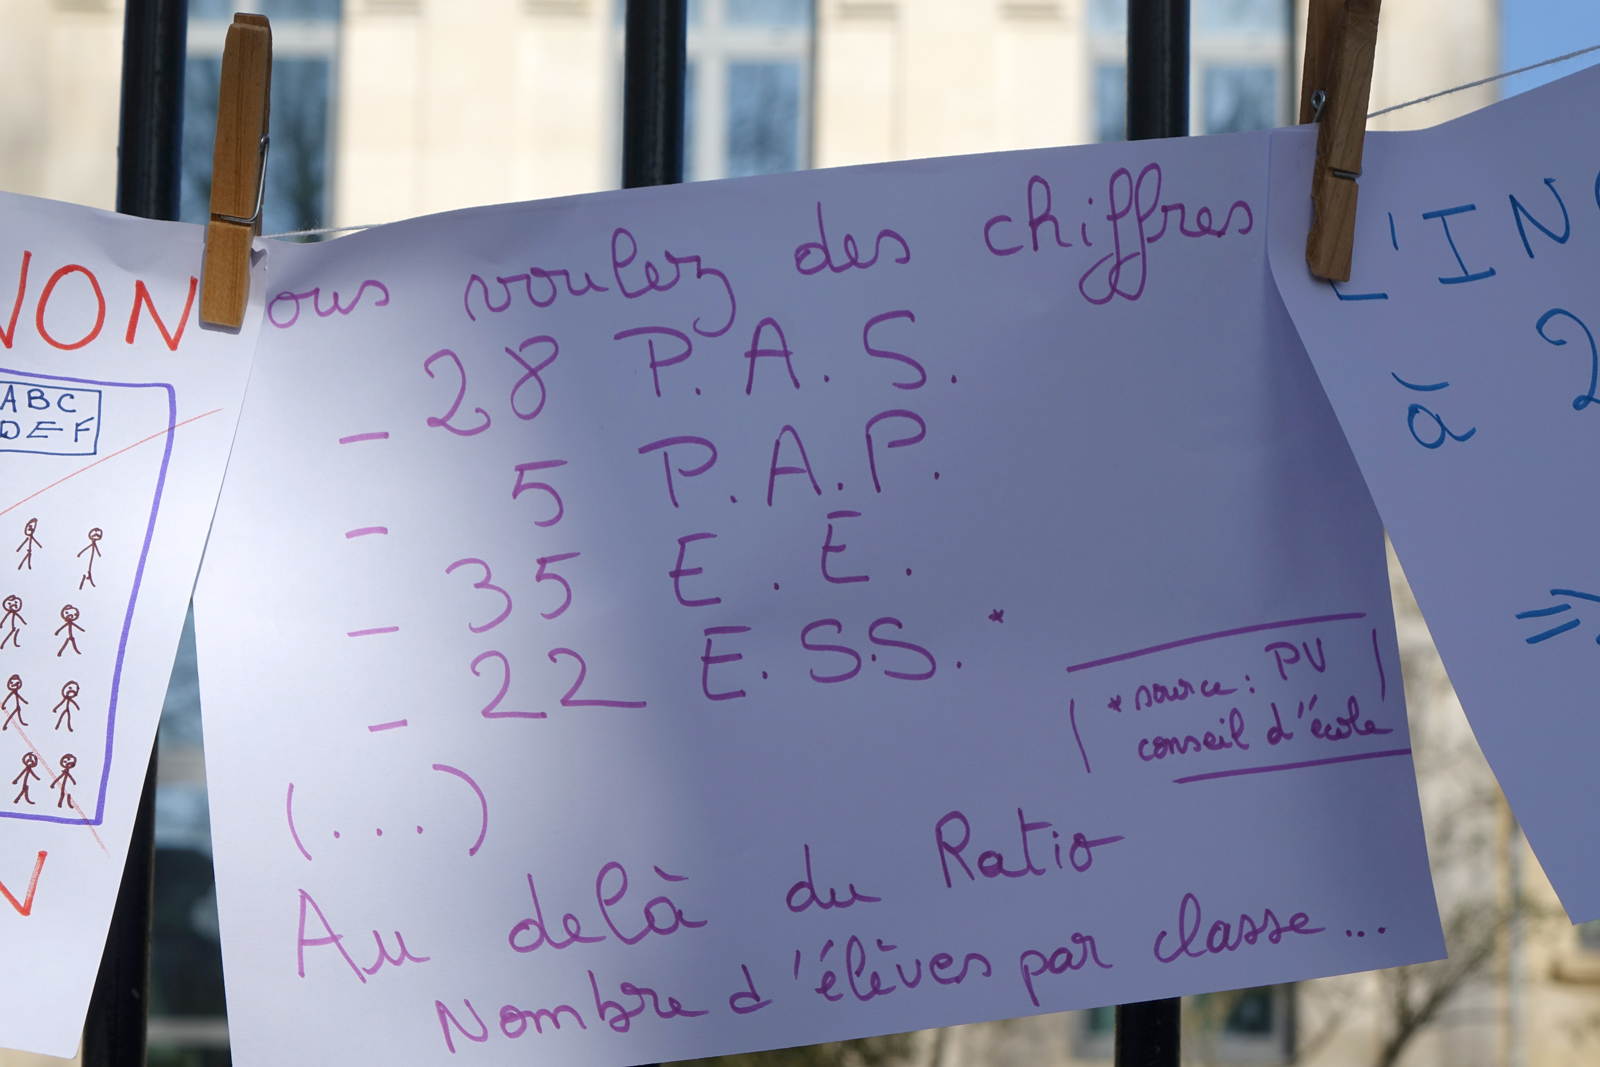 NON
ABC
DEF
N
ous voulez des chiffres
- 28 P.A.S.
- 5 P.A.P.
- 35 E.E.
- 22 E.S.S.*
* source : PV
conseil d'école
(...)
Au delà du Ratio
Nombre d'élèves par classe...
L'IN
à 2
=>